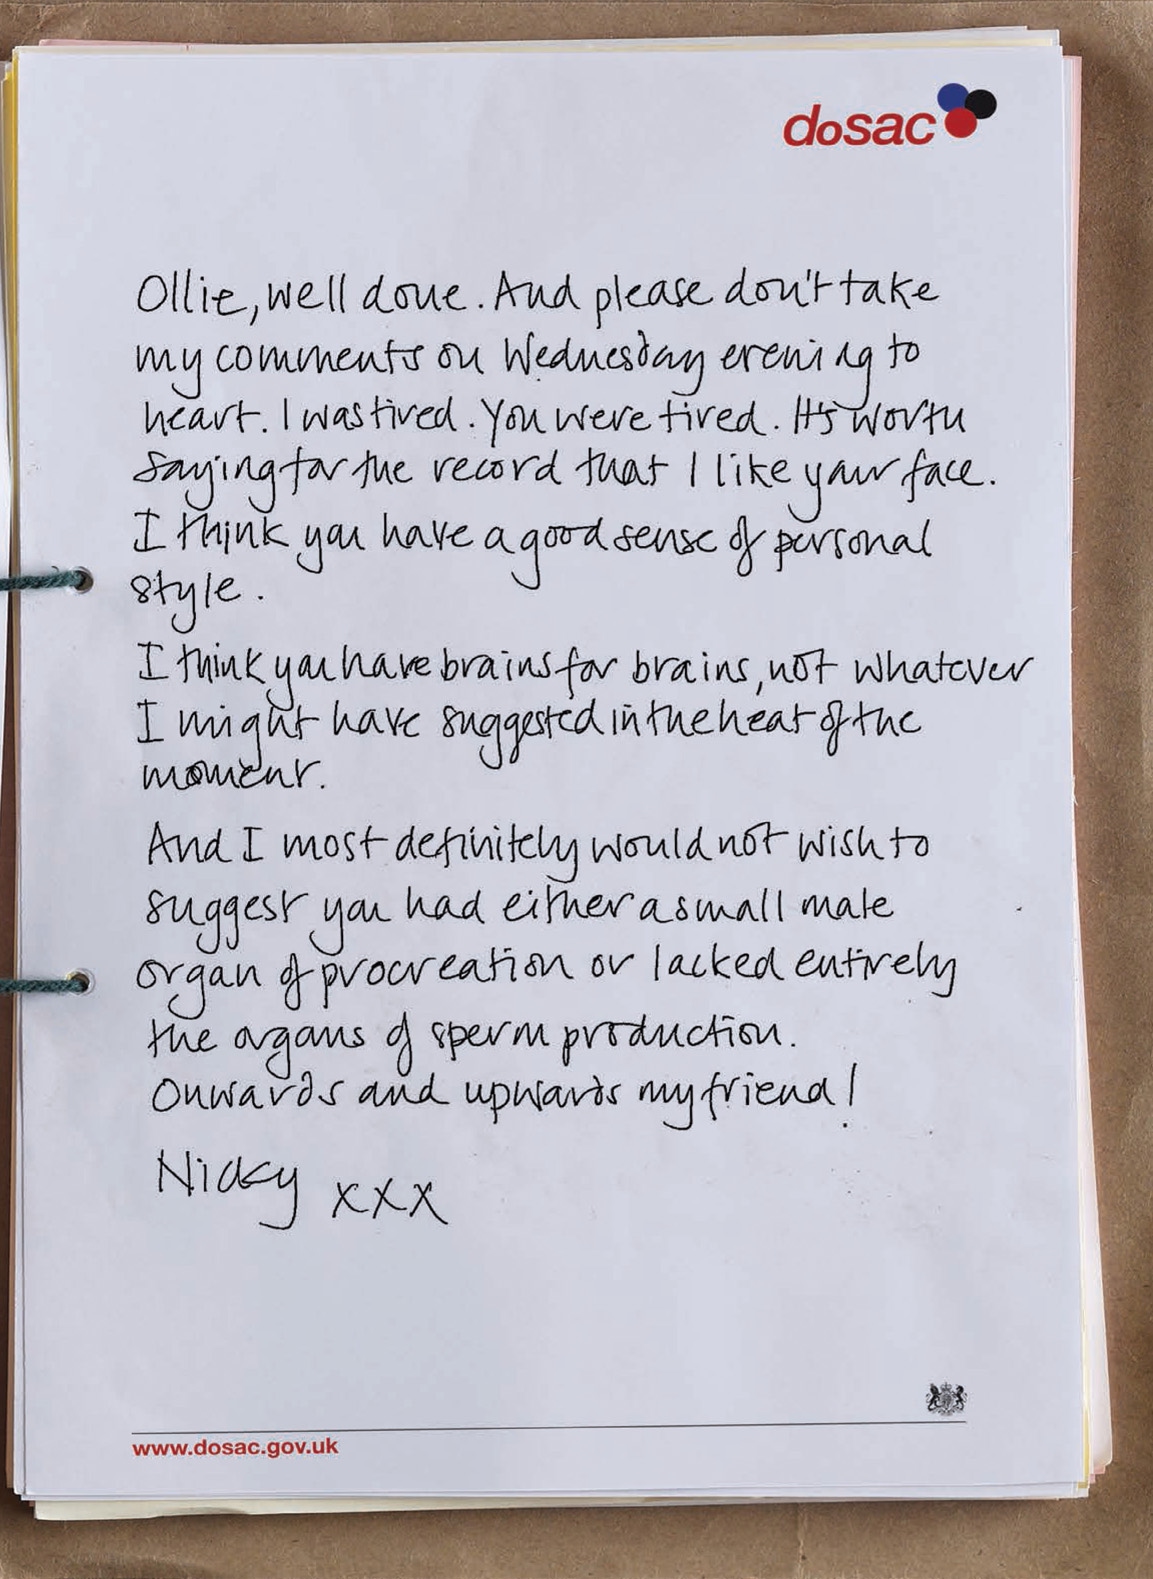 dosac
Ollie, well done. And please don't take
my comments on Wednesday evening to
heart. I was tired. You were tired. It's worth
saying for the record that I like your face.
I think you have a good sense of personal
style.
I think you have brains for brains, not whatever
I might have suggested in the heat of the
moment.
And I most definitely would not wish to
suggest you had either a small male
organ of procreation or lacked entirely
the organs of sperm production.
Onwards and upwards my friend!
Nicky xxx
www.dosac.gov.uk